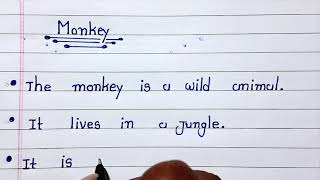 Monkey
The monkey is a wild animal.
It lives in a jungle.
It is